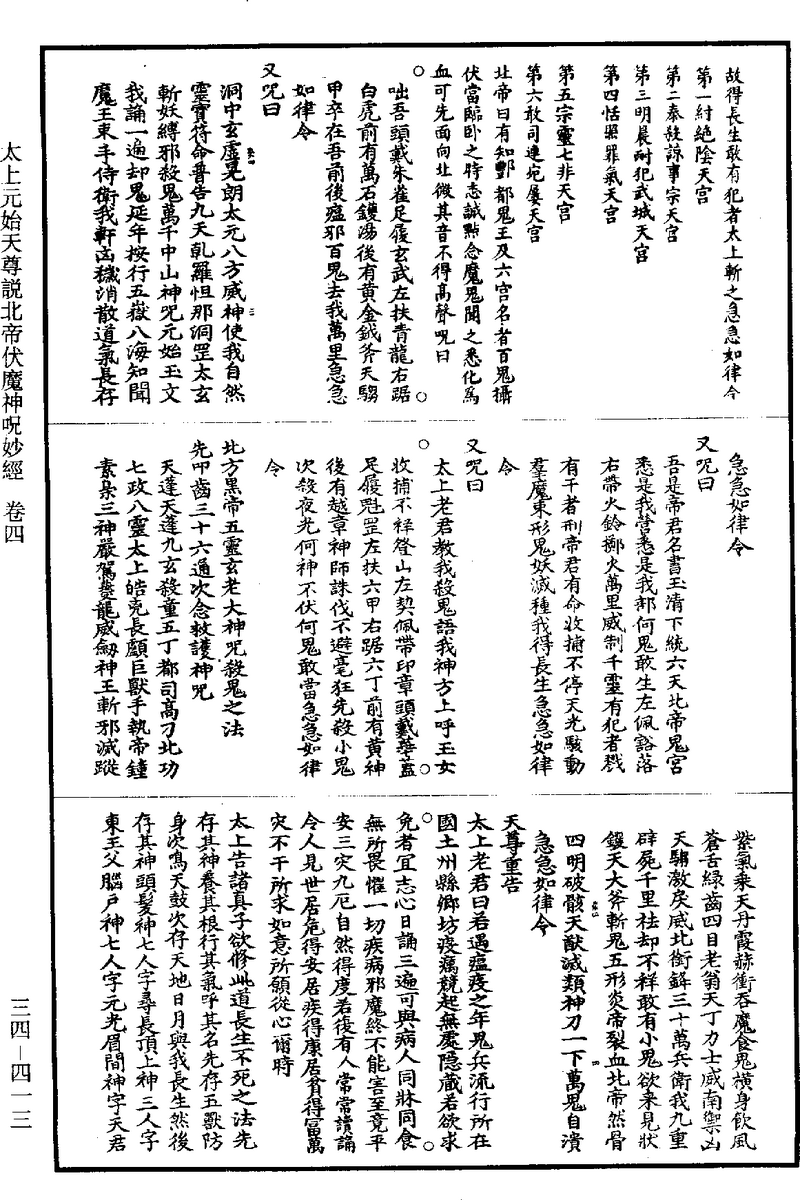 太上元始天尊説北帝伏魔神呪妙經　卷四
三四—四一三
故得長生敢有犯者太上斬之急急如律令
第一紂絕陰天宮
第二泰殺諒事宗天宮
第三明晨耐犯武城天宮
第四恬照罪氣天宮
第五宗靈七非天宮
第六敢司連宛屢天宮
北帝曰有知酆都鬼王及六宮名者百鬼攝
伏當臨卧之時志誠點念魔鬼聞之悉化爲
血可先面向北微其音不得髙聲呪曰
咄吾頭戴朱雀足履玄武左扶青龍右踞
白虎前有萬石鑊湯後有黄金鉞斧天騶
甲卒在吾前後瘟邪百鬼去我萬里急急
如律令
又呪曰
洞中玄虛晃朗太元八方威神使我自然
靈寶符命普告九天乹羅怛那洞罡太玄
斬妖縛邪殺鬼萬千中山神呪元始玉文
我誦一遍却鬼延年按行五嶽八海知聞
魔王束手侍衛我軒凶穢消散道氣長存
急急如律令
又呪曰
吾是帝君名書玉清下統六天北帝鬼宮
悉是我營悉是我部何鬼敢生左佩豁落
右帶火鈴擲火萬里威制千靈有犯者戮
有干者刑帝君有命收捕不停天光駭動
羣魔束形鬼妖滅種我得長生急急如律
令
又呪曰
太上老君教我殺鬼語我神方上呼玉女
收捕不祥登山左契佩帶印章頭戴華蓋
足履魁罡左扶六甲右踞六丁前有黄神
後有越章神師誅伐不避毫狂先殺小鬼
次殺夜光何神不伏何鬼敢當急急如律
令
北方黒帝五靈玄老大神呪殺鬼之法
先叩齒三十六通次念救護神呪
天蓬天蓬九玄殺童五丁都司高刁北功
七政八靈太上皓兇長顱巨獸手執帝鐘
素梟三神嚴駕夔龍威劒神王斬邪滅蹤
紫氣乗天丹霞赫衝吞魔食鬼横身飲風
蒼舌緑齒四目老翁天丁力士威南禦凶
天騶激戾威北銜鋒三十萬兵衛我九重
辟屍千里袪却不祥敢有小鬼欲來見狀
钁天大斧斬鬼五形炎帝裂血北帝然骨
四明破骸天猷滅類神刀一下萬鬼自潰
急急如律令
天尊重告
太上老君曰若遇瘟疫之年鬼兵流行所在
國土州縣鄉坊疫癘競起無處隱藏若欲求
免者宜志心日誦三遍可與病人同牀同食
無所畏懼一切疾病邪魔終不能害至竟平
安三灾九厄自然得度若復有人常常讀誦
令人見世居危得安居疾得康居貧得冨萬
灾不干所求如意所願從心爾時
太上告諸真子欲修此道長生不死之法先
存其神養其根行其氣呼其名先存五獸防
身次鳴天鼓次存天地日月與我長生然後
存其神頭髮神七人字尋長頂上神三人字
東王父腦户神七人字元光眉間神字天君